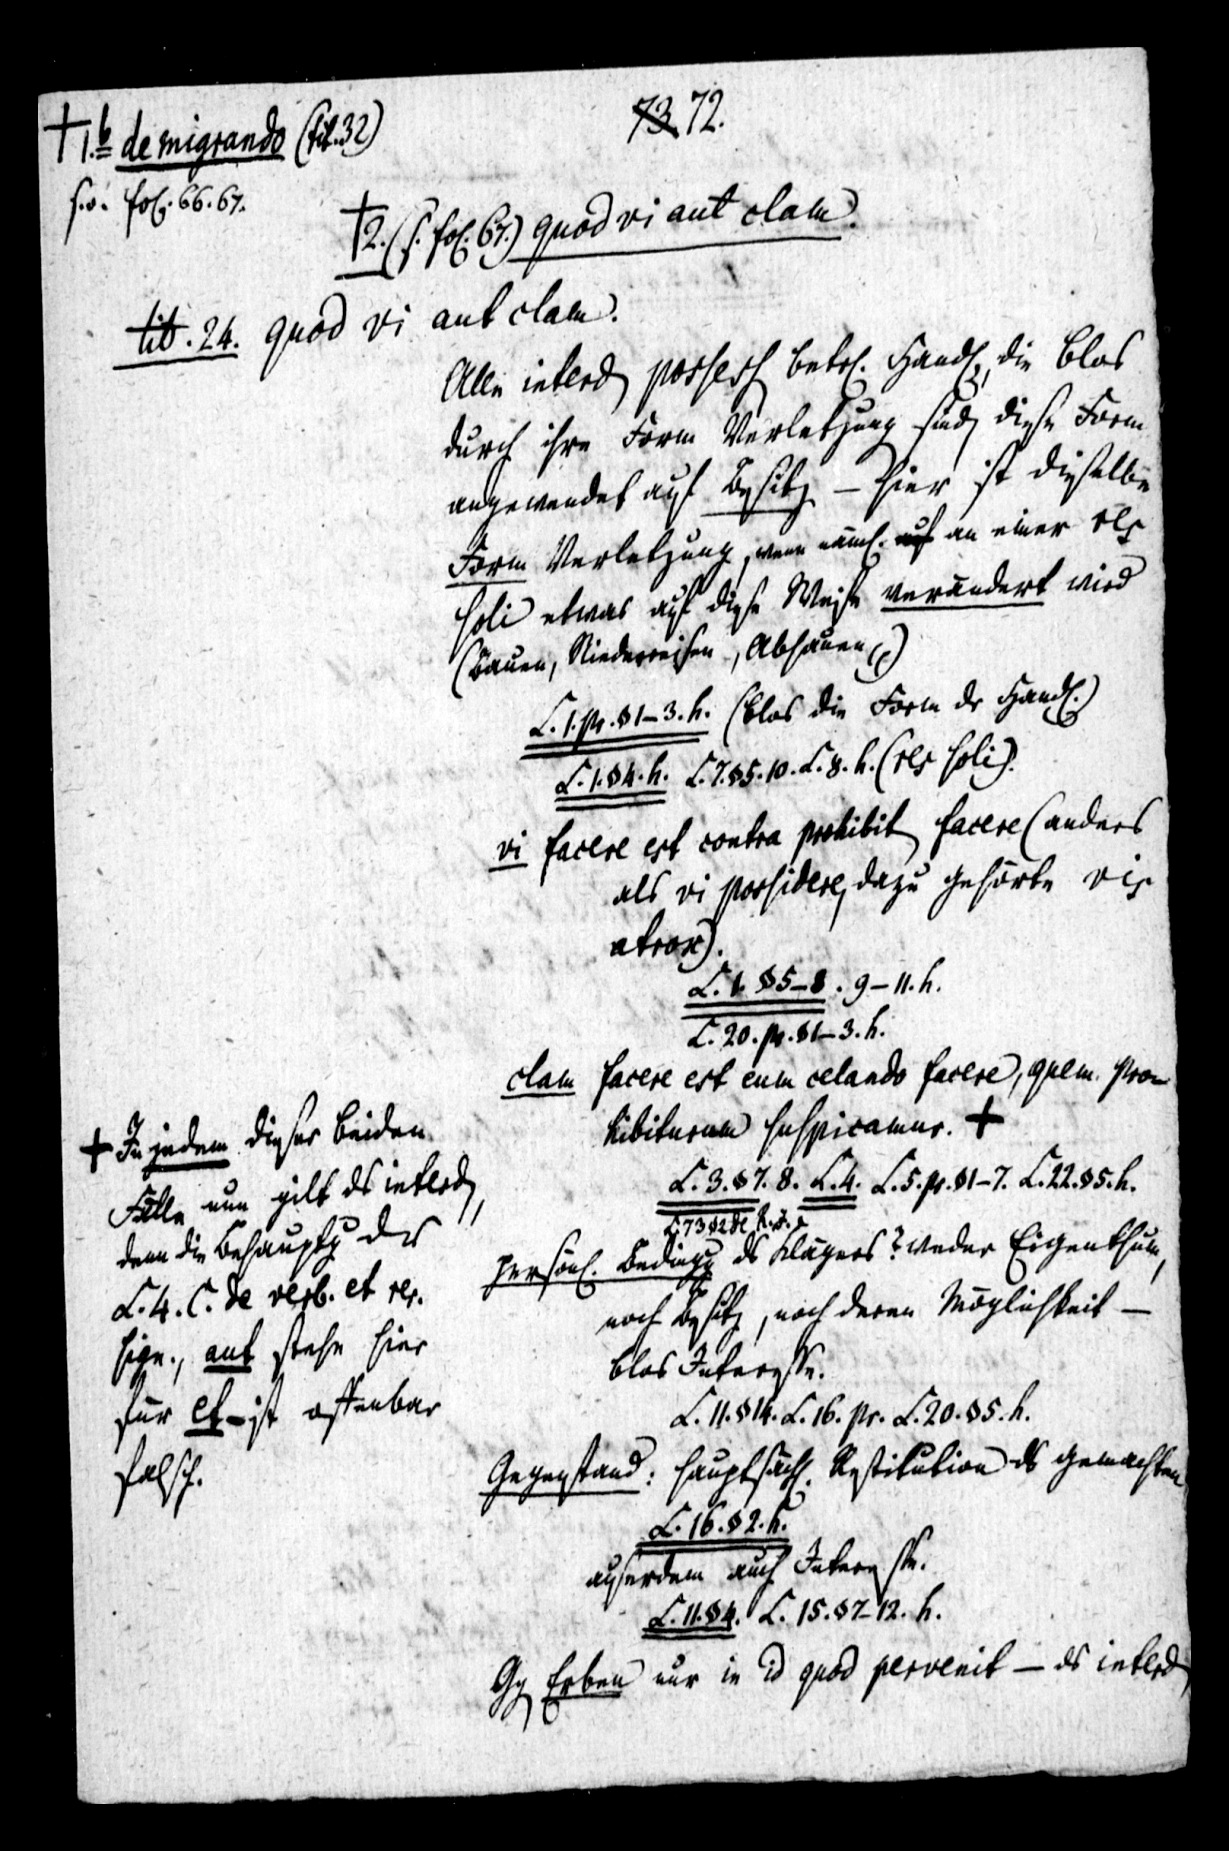 73 72.
† 1.b de migrando (tit. 32)
s. o. fol. 66. 67.
† 2. (s. fol. 67.) quod vi aut clam.
tit. 24. quod vi aut clam.
Alle interd possess betr. Handl., die blos
durch ihre Form Verletzung sind, diese Form
angewendet auf Besitz – hier ist dieselbe
Form Verletzung, wenn näml. auf an einer res
soli etwas auf diese Weise verändert wird
(Bauen, Niederreisen, Abhauen pp)
L. 1. pr. § 1–3. h. (blos die Form dr Handl.)
L. 1. § 4. h. L. 7. § 5. 10. L. 8. h. (res soli).
vi facere est contra prohibit facere (anders
als vi possidere, dazu gehörte vis
atrox).
L. 1. § 5–8. 9–11. h.
L. 20. pr. § 1–3. h.
clam facere est eum celando facere, quem pro-
hibiturum suspicamur. †
L. 3. § 7. 8. L. 4. L. 5. pr. § 1–7. L. 22. § 5. h.
L. 73 § 2 de R. J.
persönl. Beding ds Klägers? weder Eigenthum,
noch Besitz, noch deren Möglichkeit –
blos Interesse.
L. 11. § 14. L. 16. pr. L. 20. § 5. h.
Gegenstand: hauptsächl. Restitution ds gemachten
L. 16. § 2. h.
außerdem auch Interesse.
L. 11. § 4. L. 15. § 7–12. h.
Gg Erben nur in id quod pervenit – ds interd
† In jedem dieser beiden
Fälle nun gilt ds interd,
denn die Behauptg der
L. 4. C. de verb. et rer.
sign., aut stehe hier
für et – ist offenbar
falsch.